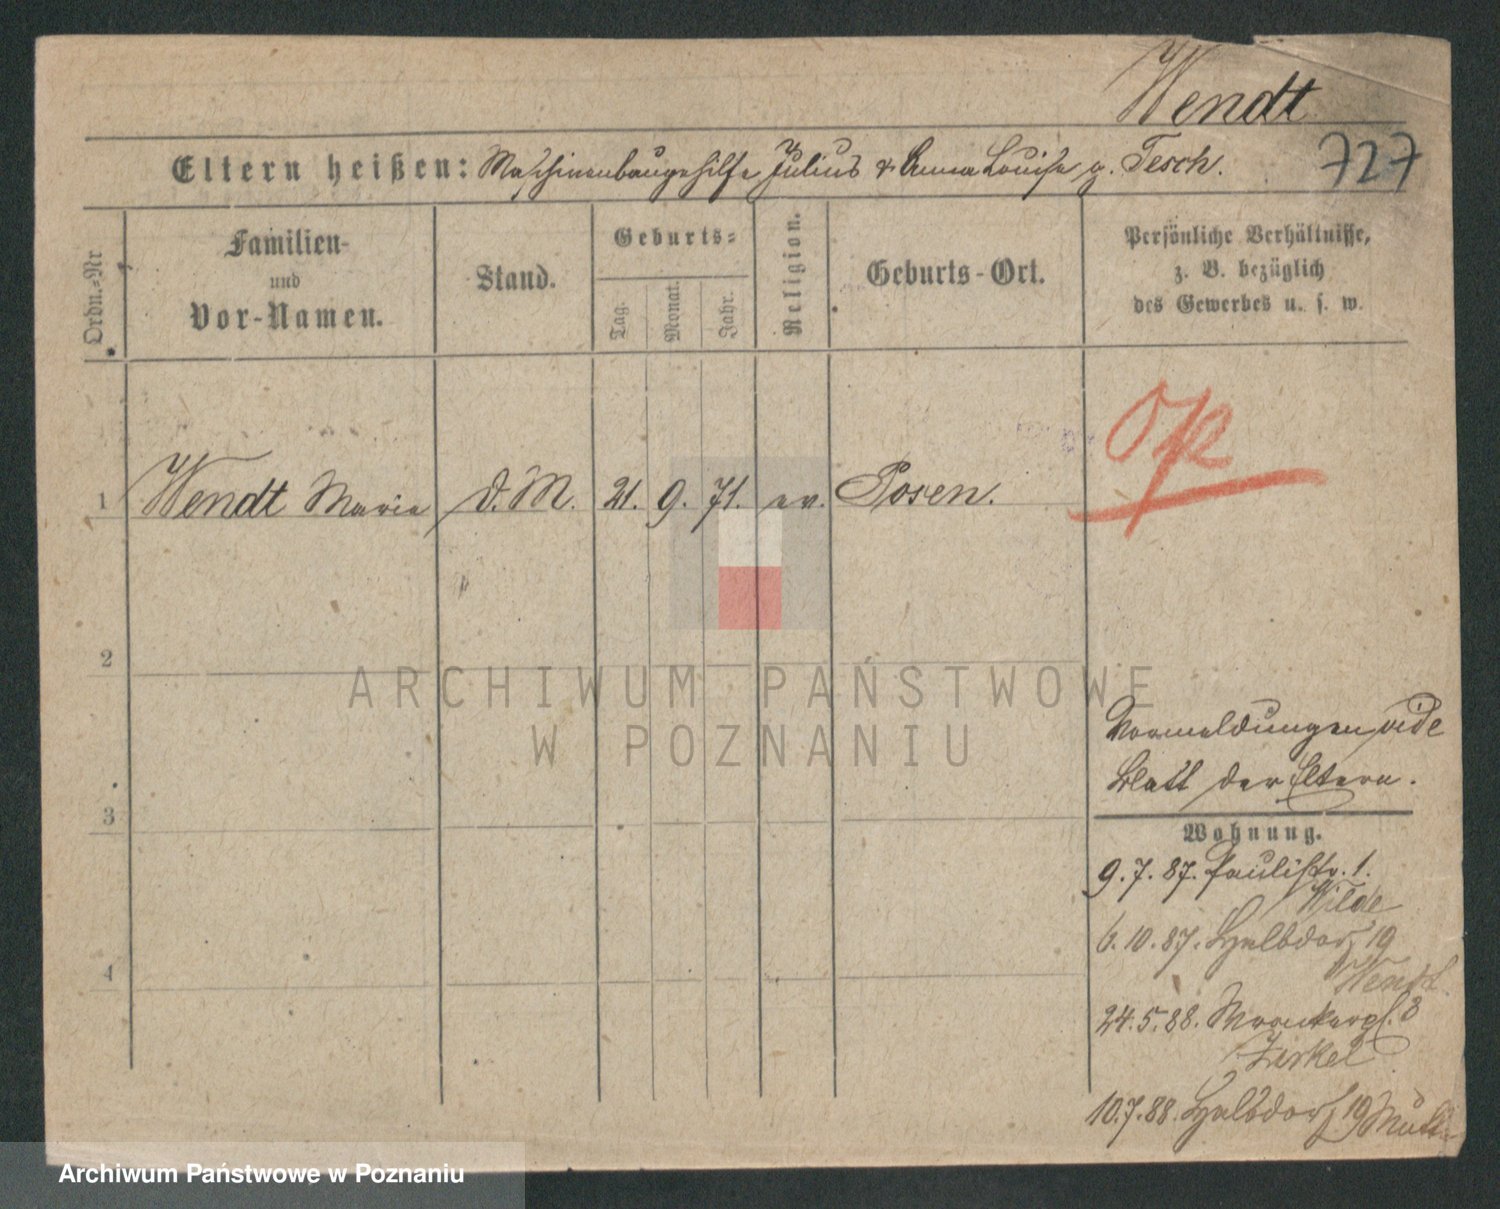 Wendt
Eltern heißen: Maschinenbaugehilfe Julius & Anna Louise g. Tesch.
727
Ordn.-Nr
Familien-
und
Vor-Namen.
Stand.
Geburts-
Tag.
Monat.
Jahr.
Religion.
Geburts-Ort.
Persönliche Verhältnisse,
z. B. bezüglich
des Gewerbes u. s. w.
1 Wendt Marie d. M. 21. 9. 71. ev. Posen.
2
3
4
ARCHIWUM PAŃSTWOWE
W POZNANIU
Vormeldungen vide
Blatt der Eltern.
Wohnung.
9.7.87. Paulistr. 1.
Wilde
6.10.87. Halbdorf 19
Wendt
24.5.88. 3
10.7.88. Halbdorf 19
Archiwum Państwowe w Poznaniu